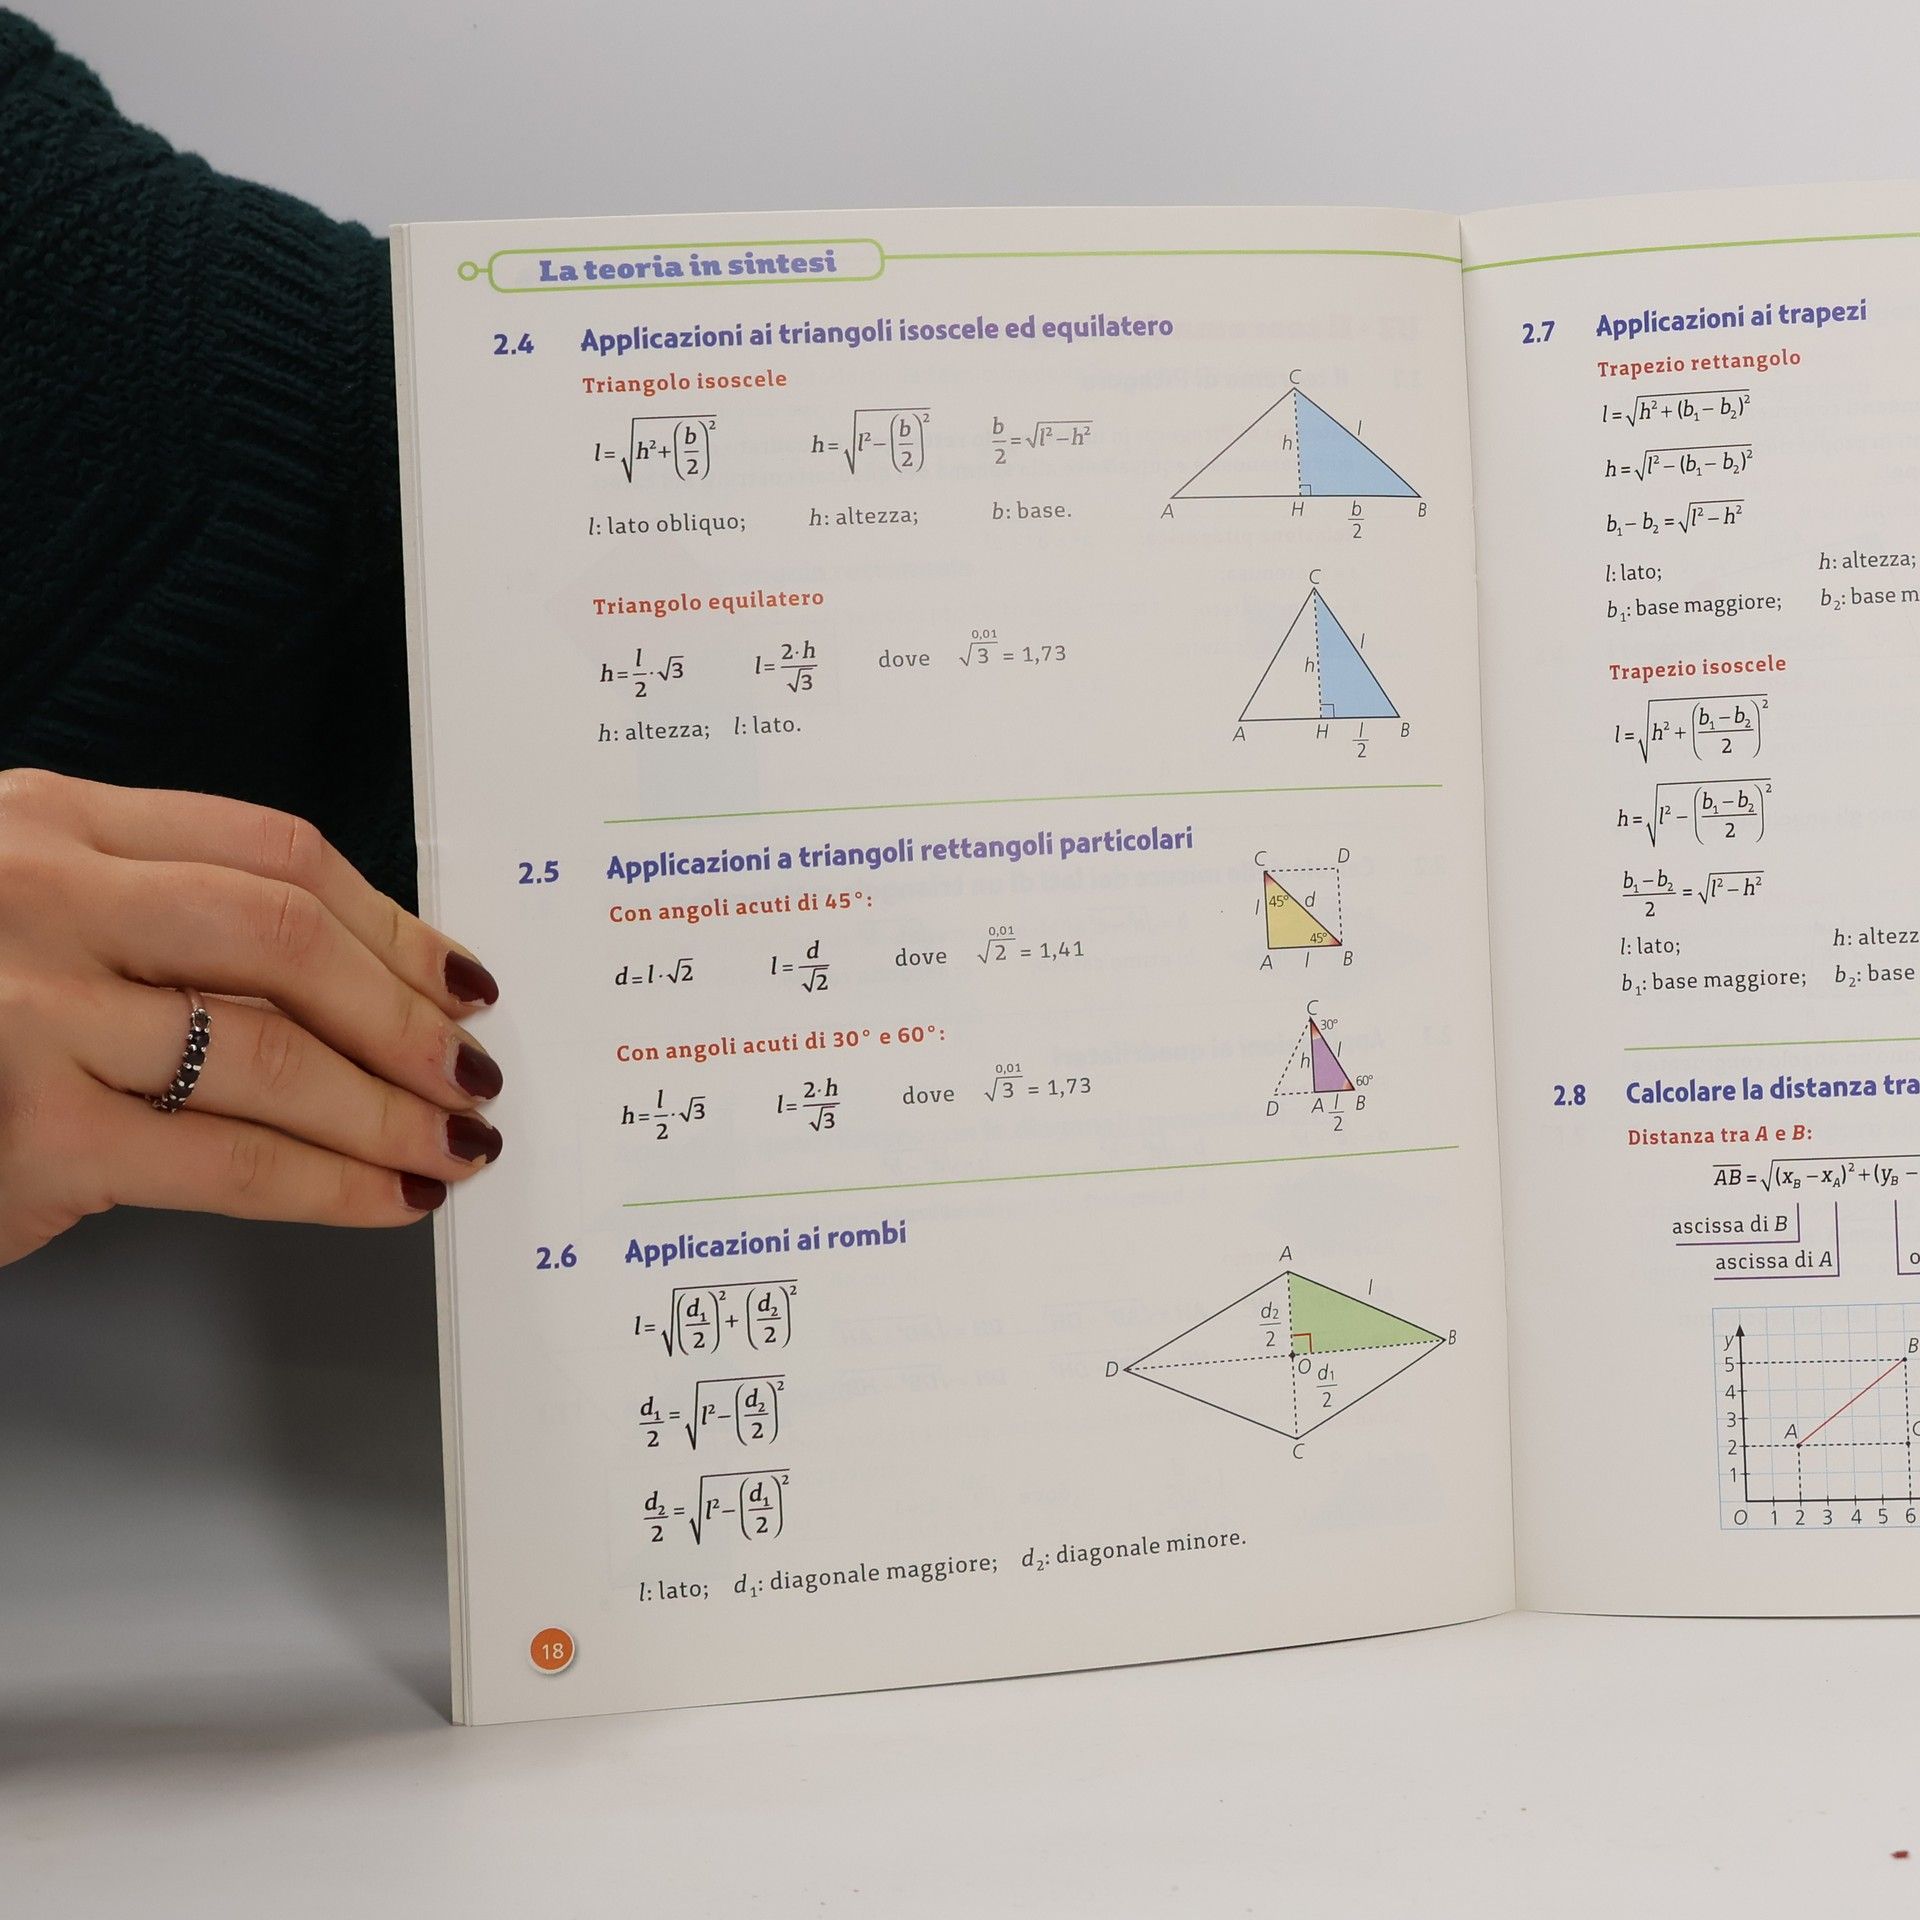 La teoria in sintesi
2.4 Applicazioni ai triangoli isoscele ed equilatero
Triangolo isoscele
l=√(h²+(b/2)²) h=√(l²−(b/2)²) b/2=√(l²−h²)
l: lato obliquo; h: altezza; b: base.
C
h l
A H b/2 B
Triangolo equilatero
h=l/2·√3 l=2·h/√3 dove 0,01 √3 = 1,73
h: altezza; l: lato.
C
h l
A H l/2 B
2.5 Applicazioni a triangoli rettangoli particolari
Con angoli acuti di 45°:
d=l·√2 l=d/√2 dove 0,01 √2 = 1,41
C D
l 45° d
45°
A l B
Con angoli acuti di 30° e 60°:
h=l/2·√3 l=2·h/√3 dove 0,01 √3 = 1,73
C
30°
h l
60°
D A l/2 B
2.6 Applicazioni ai rombi
l=√((d₁/2)²+(d₂/2)²)
d₁/2=√(l²−(d₂/2)²)
d₂/2=√(l²−(d₁/2)²)
A
d₂/2 l
D O d₁/2 B
C
l: lato; d₁: diagonale maggiore; d₂: diagonale minore.
18
2.7 Applicazioni ai trapezi
Trapezio rettangolo
l=√(h²+(b₁−b₂)²)
h=√(l²−(b₁−b₂)²)
b₁−b₂=√(l²−h²)
l: lato; h: altezza;
b₁: base maggiore; b₂: base m
Trapezio isoscele
l=√(h²+((b₁−b₂)/2)²)
h=√(l²−((b₁−b₂)/2)²)
(b₁−b₂)/2=√(l²−h²)
l: lato; h: altezz
b₁: base maggiore; b₂: base
2.8 Calcolare la distanza tra
Distanza tra A e B:
AB=√(x_B−x_A)²+(y_B−
ascissa di B
ascissa di A o
y B
5
4
3 A
2
1
O 1 2 3 4 5 6